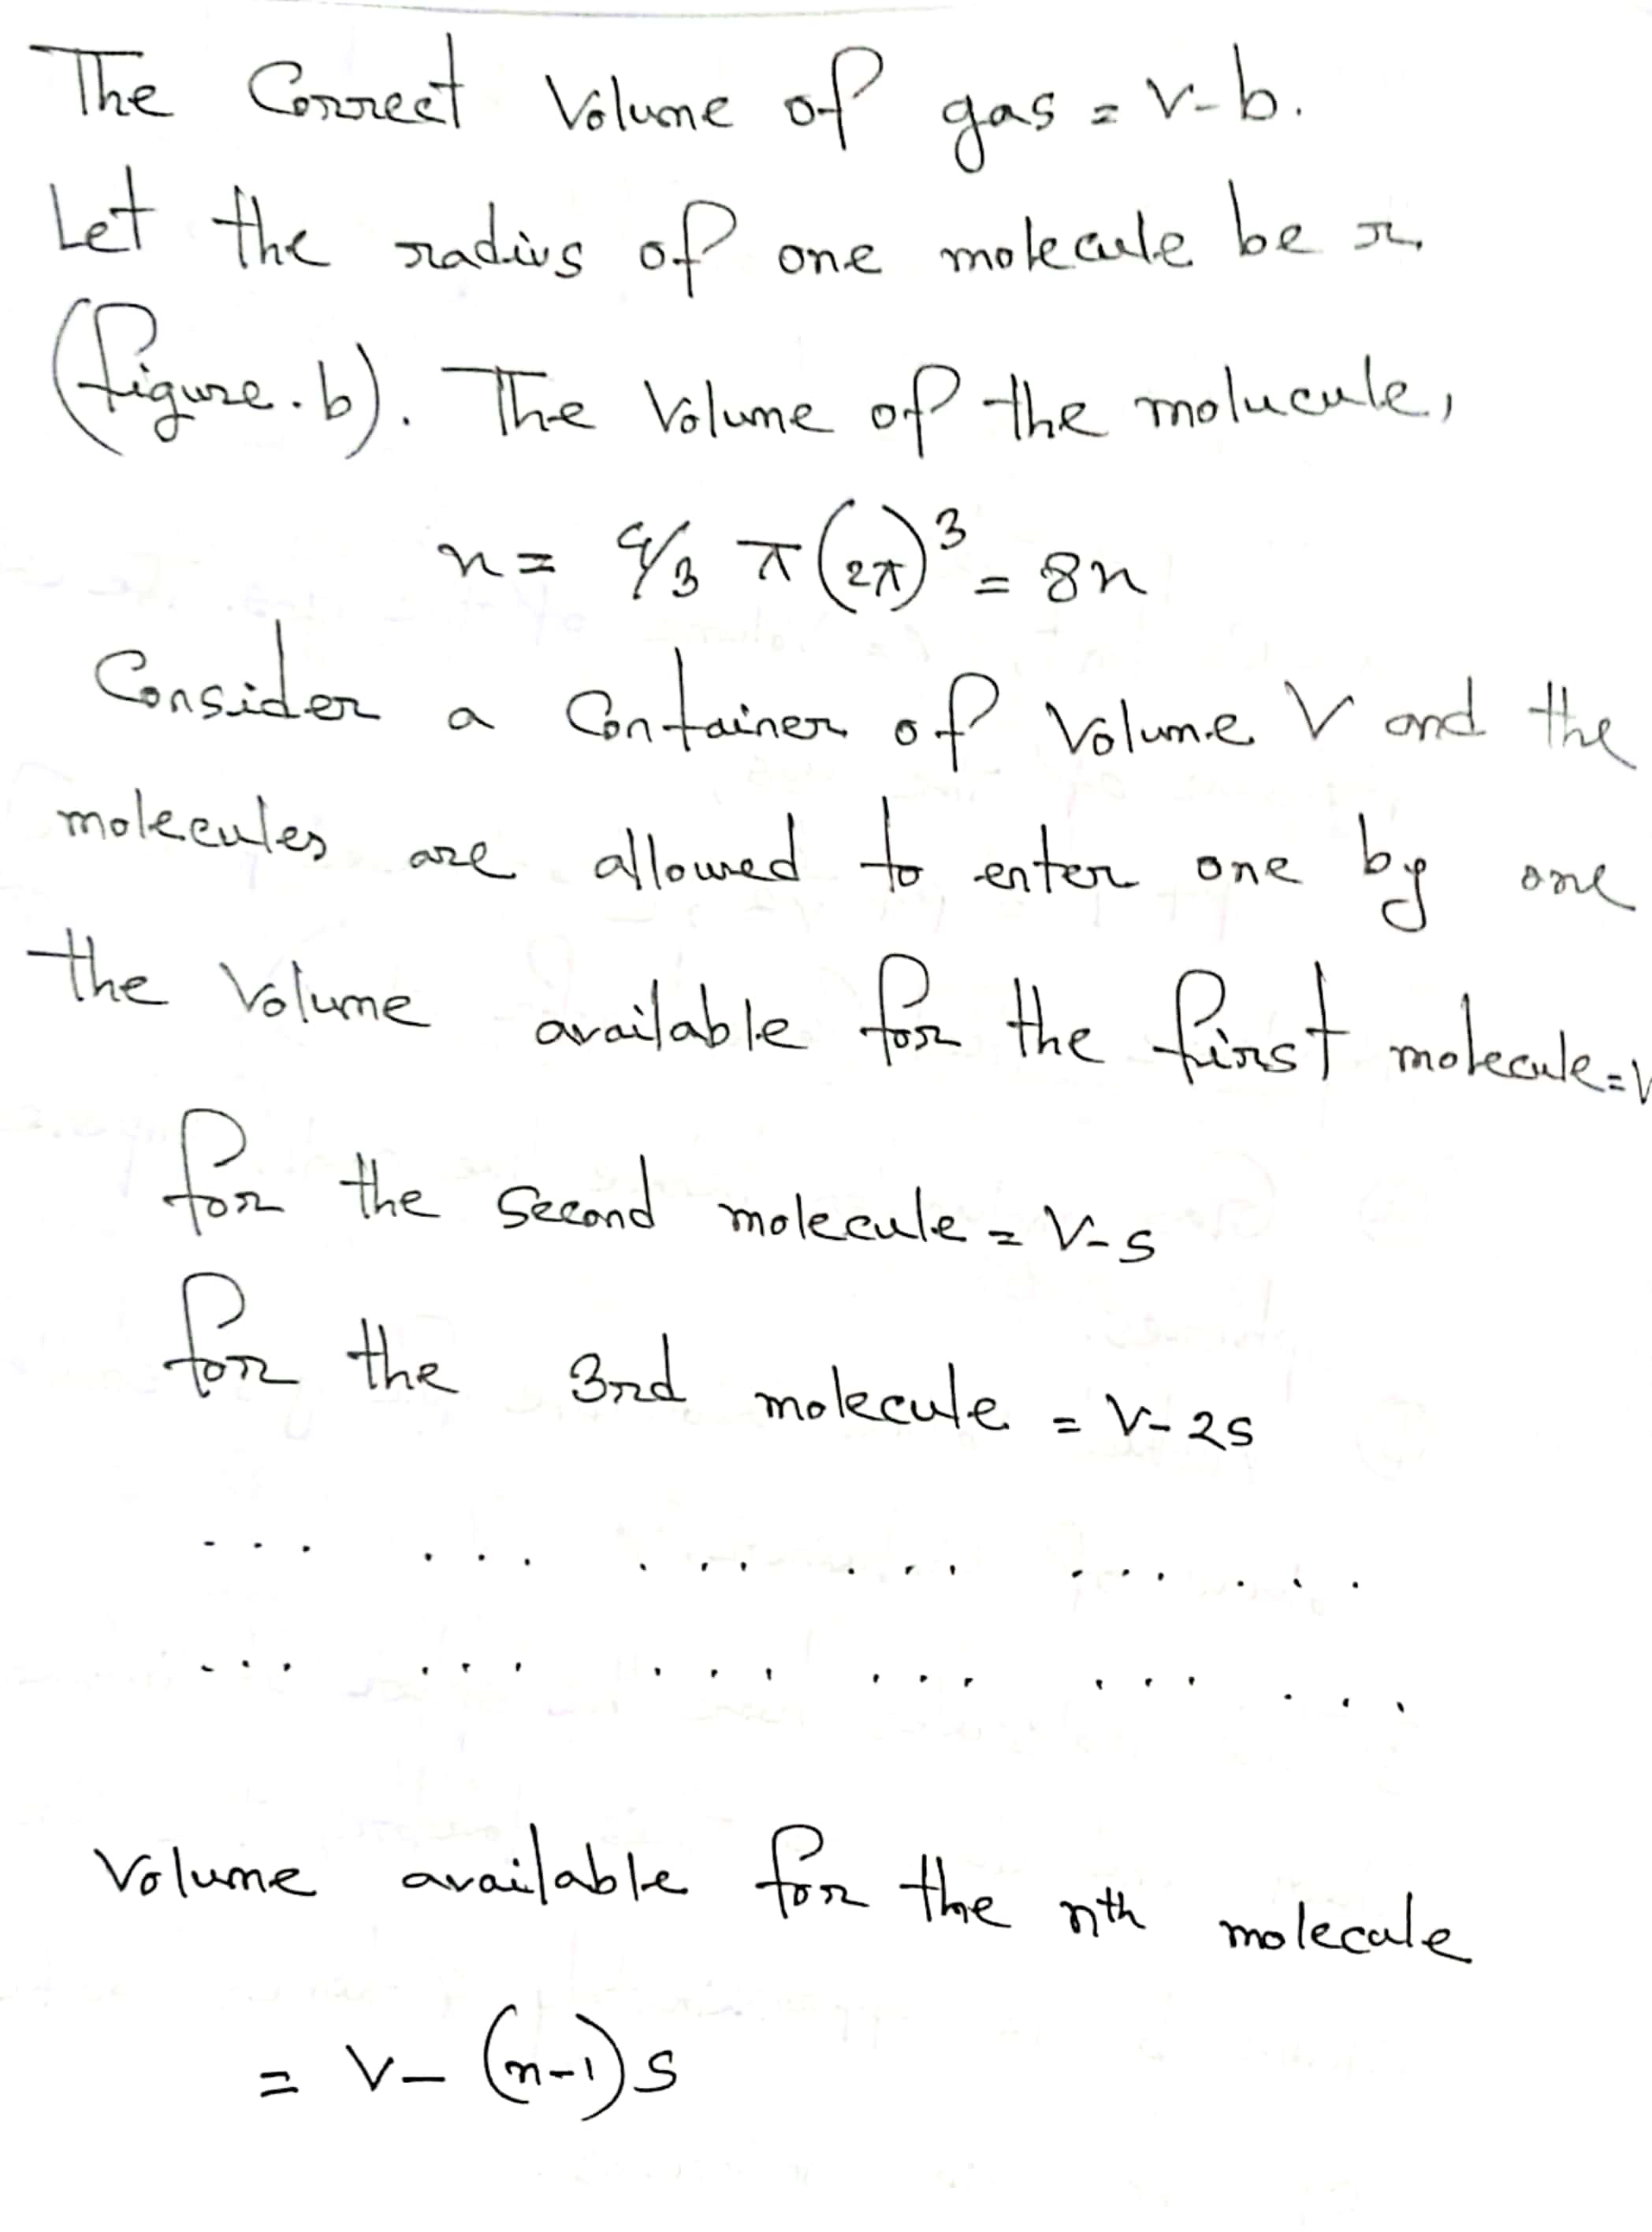 The Correct Volume of gas = V-b.
Let the radius of one molecule be r.
(figure.b). The Volume of the molucule,
x = 4/3 π(2π)³ = 8x
Consider a Container of Volume V and the
molecules are allowed to enter one by one
the Volume available for the first molecule=V
for the second molecule = V-s
for the 3rd molecule = V-2s
... ... ... ... ... ...
... ... ... ... ... ...
Volume available for the nth molecule
= V- (n-1)s